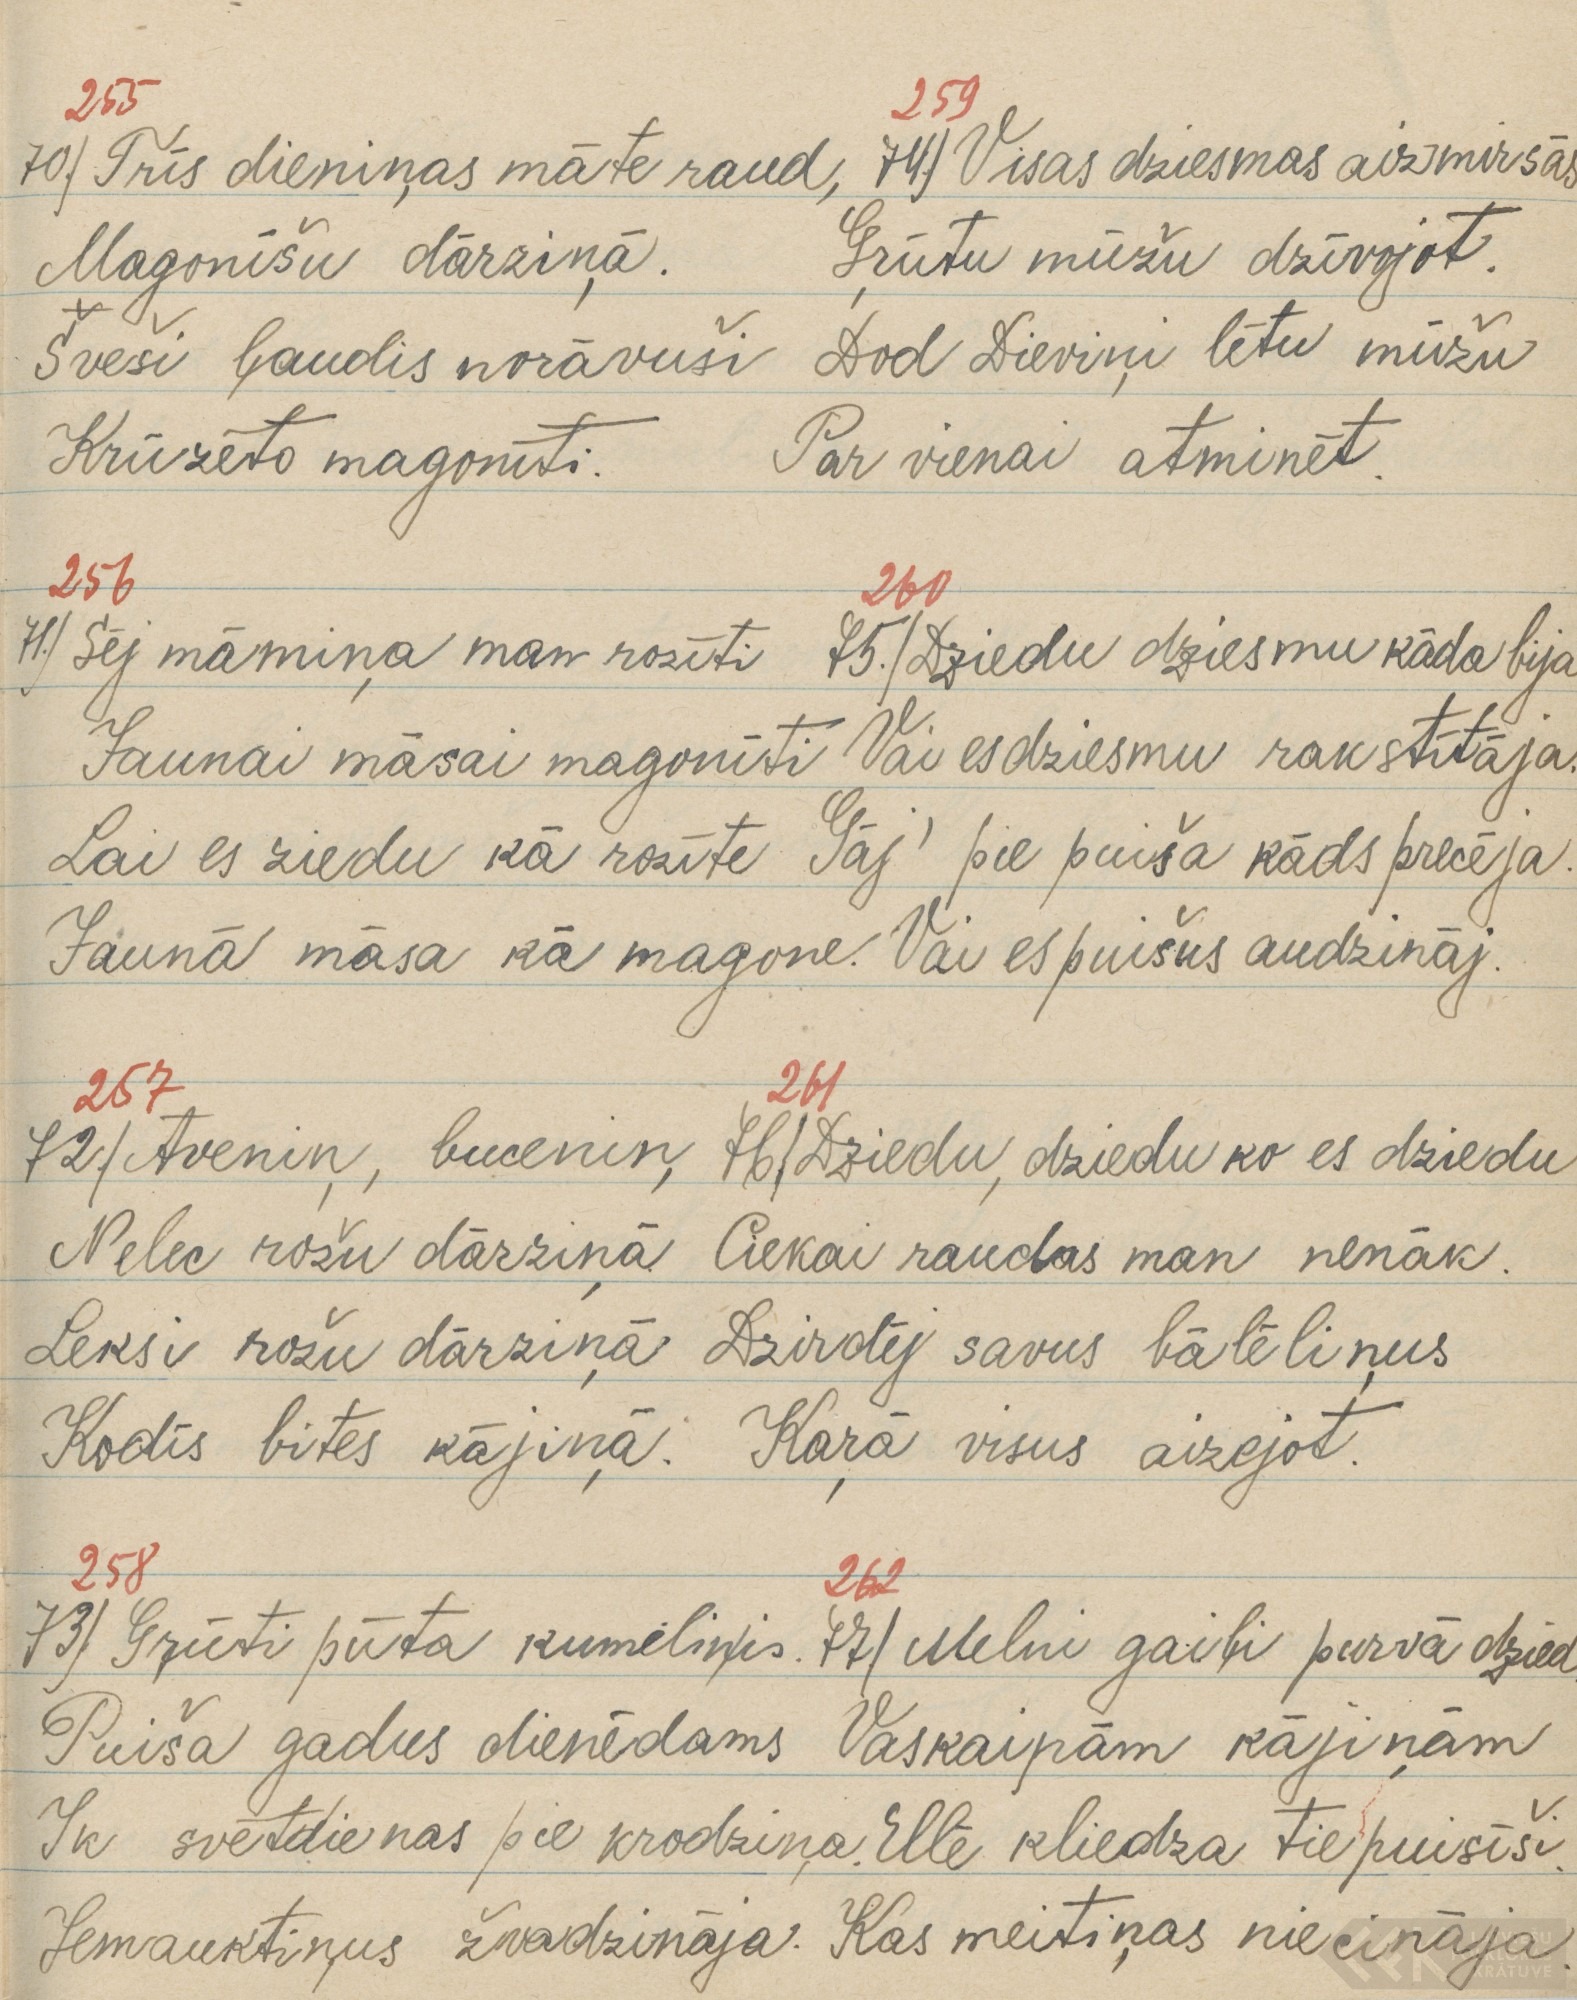 255
70.) Trīs dieniņas māte raud,
Magonīšu dārziņā.
Šveši ļaudis norāvuši
Krūzēto magonīti.
256
71.) Sēj māmiņa man rozīti
Jaunai māsai magonīti
Lai es ziedu kā rozīte
Jaunā māsa kā magone.
257
72.) Aveniņ, buceniņ,
Nelec rožu dārziņā
Leksi rožu dārziņā
Kodīs bites kājiņā.
258
73.) Grūti pūta kumeliņis.
Puiša gadus dienēdams
Ik svētdienas pie krodziņa.
Iemauktiņus žvadzināja.
259
74.) Visas dziesmas aizmirsās
Grūtu mūžu dzīvojot.
Dod Dieviņi lētu mūžu
Par vienai atminēt.
260
75.) Dziedu dziesmu kāda bija
Vai es dziesmu rakstītāja.
Gāj' pie puiša kāds precēja.
Vai es puišus audzināj.
261
76.) Dziedu, dziedu ko es dziedu
Ciekai raudas man nenāk.
Dzirdēj savus bātēliņus
Kaŗā visus aizejot.
262
77.) Melni gaiļi purvā dzied.
Vaskaiņām kājiņām
Ellē kliedza tie puisīši.
Kas meitiņas niecināja.
KRĀTUVE